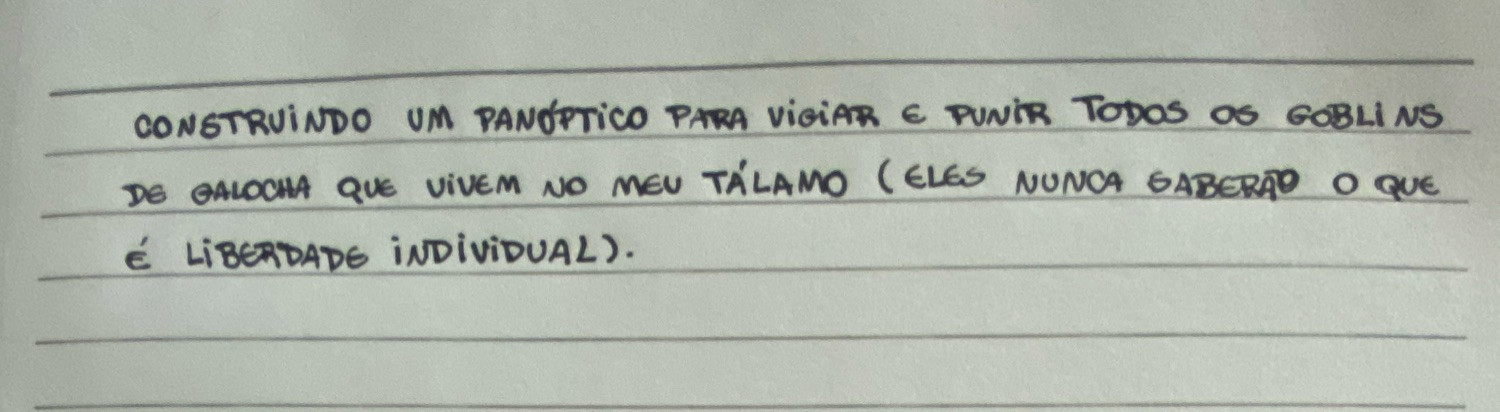 CONSTRUINDO UM PANÓPTICO PARA VIGIAR E PUNIR TODOS OS GOBLINS
DE GALOCHA QUE VIVEM NO MEU TÁLAMO (ELES NUNCA SABERÃO O QUE
É LIBERDADE INDIVIDUAL).